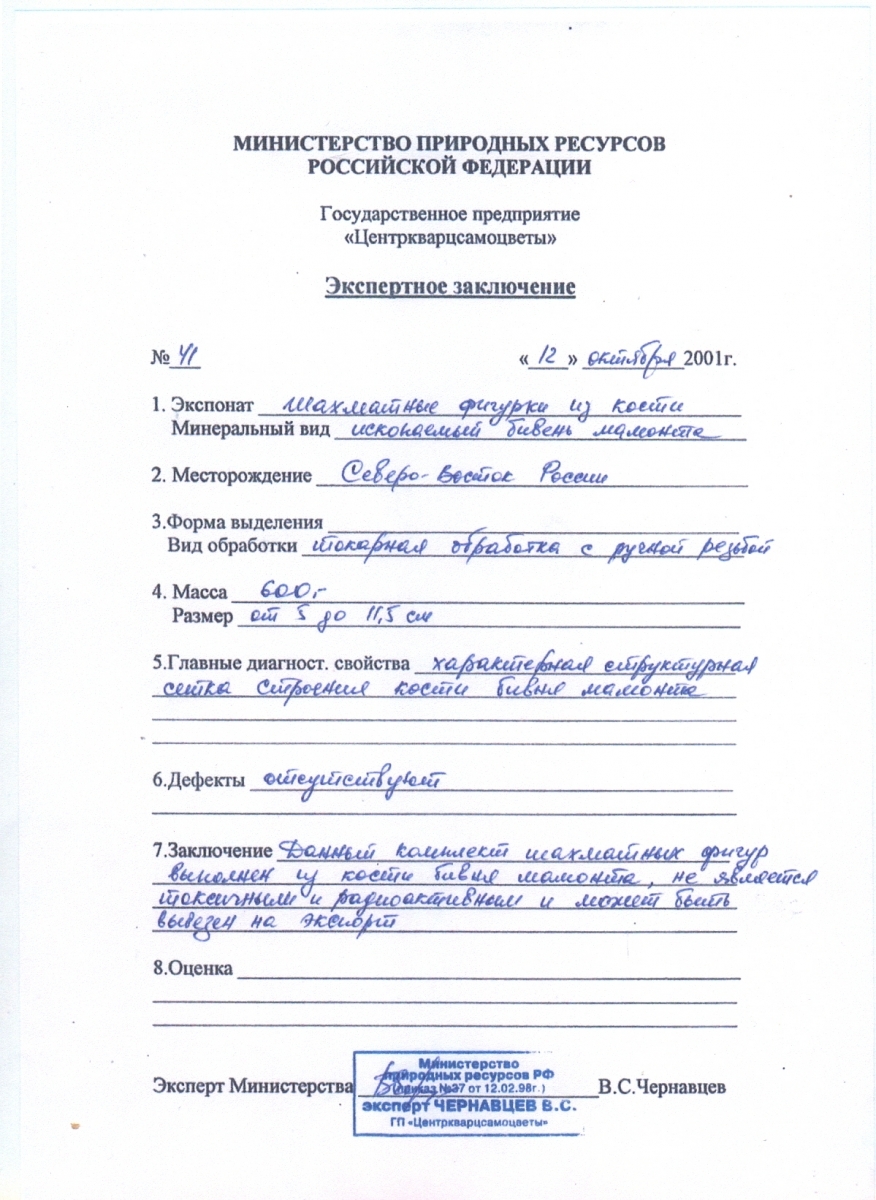 МИНИСТЕРСТВО ПРИРОДНЫХ РЕСУРСОВ
РОССИЙСКОЙ ФЕДЕРАЦИИ
Государственное предприятие
«Центркварцсамоцветы»
Экспертное заключение
№ 41 « 12 » октября 2001г.
1. Экспонат Шахматные фигурки из кости
Минеральный вид ископаемый бивень мамонта
2. Месторождение Северо-Восток России
3.Форма выделения
Вид обработки токарная обработка с ручной резьбой
4. Масса 600,-
Размер от 5 до 11,5 см
5.Главные диагност. свойства характерная структурная
сетка строения кости бивня мамонта
6.Дефекты отсутствуют
7.Заключение Данный комплект шахматных фигур
выполнен из кости бивня мамонта, не является
токсичным и радиоактивным и может быть
вывезен на экспорт
8.Оценка
Министерство
природных ресурсов РФ
(приказ №37 от 12.02.98г.)
Эксперт Министерства В.С.Чернавцев
эксперт ЧЕРНАВЦЕВ В.С.
ГП «Центркварцсамоцветы»